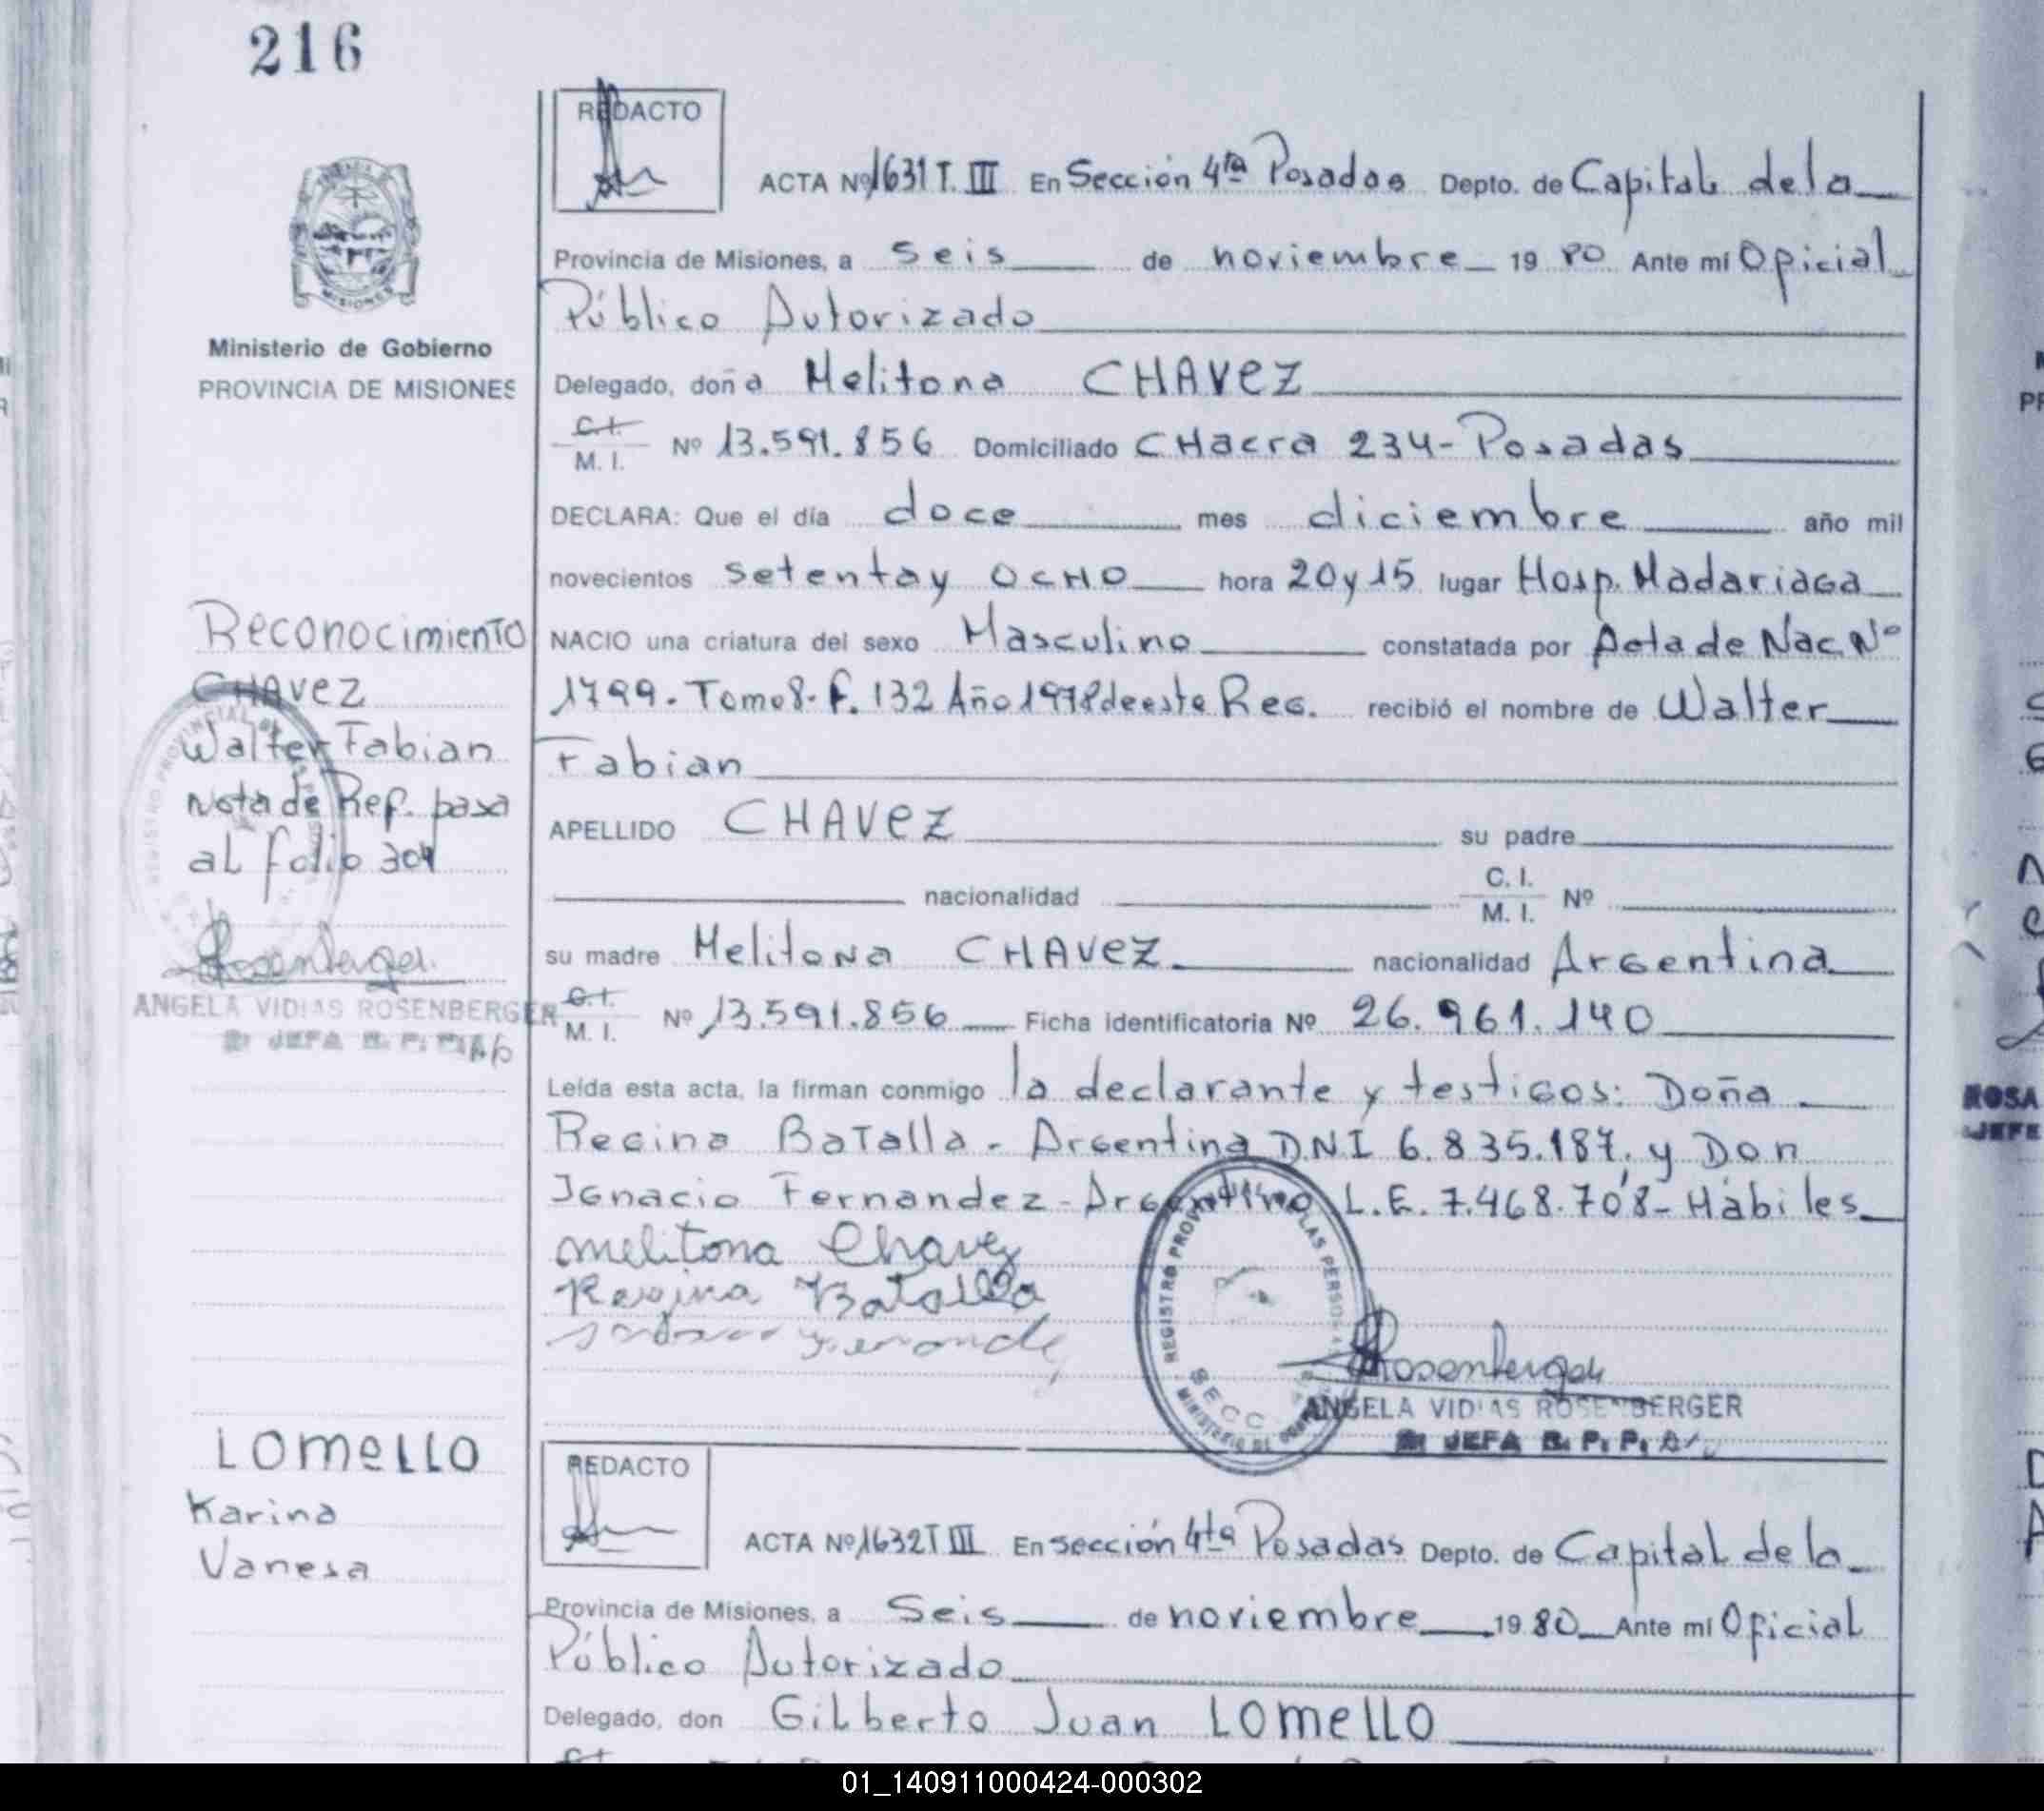 216
REDACTO
ACTA Nº 1631 T. III En Sección 4ta Posadas Depto. de Capital de la
Provincia de Misiones, a seis de noviembre 19 80 Ante mí Oficial
Público Autorizado
Ministerio de Gobierno
PROVINCIA DE MISIONES
Delegado, doña Melitona CHAVEZ
C.I.
M. I. Nº 13.591.856 Domiciliado CHacra 234- Posadas
DECLARA: Que el día doce mes diciembre año mil
novecientos setenta y OCHO hora 20 y 15 lugar Hosp. Madariaga
Reconocimiento
CHAVEZ
Walter Fabian
Nota de Ref. pasa
al folio 304
NACIO una criatura del sexo Masculino constatada por Acta de Nac. Nº
1799. Tomo 8- F. 132 Año 1978 de este Reg. recibió el nombre de Walter
Fabian
APELLIDO CHAVEZ su padre
nacionalidad C. I.
M. I. Nº
su madre Melitona CHAVEZ nacionalidad Argentina
Rosenberger
ANGELA VIDIAS ROSENBERGER
JEFA R. P. P.
C.I.
M. I. Nº 13.591.856 Ficha identificatoria Nº 26.961.140
Leída esta acta, la firman conmigo la declarante y testigos: Doña
Regina Batalla - Argentina D.N.I 6.835.187. y Don
Ignacio Fernandez - Argentino L.E. 7.468.708- Hábiles
melitona Chavez
Regina Batalla
REGISTRO PROVINCIAL DE LAS PERSONAS
SECC
MINISTERIO DE
Rosenberger
ANGELA VIDIAS ROSENBERGER
JEFA R. P. P.
LOMELLO
Karina
Vanesa
REDACTO
ACTA Nº 1632 T III En sección 4ta Posadas Depto. de Capital de la
Provincia de Misiones, a Seis de noviembre 19 80 Ante mí Oficial
Público Autorizado
Delegado, don Gilberto Juan LOMELLO
ROSA
JEFE
01_140911000424-000302